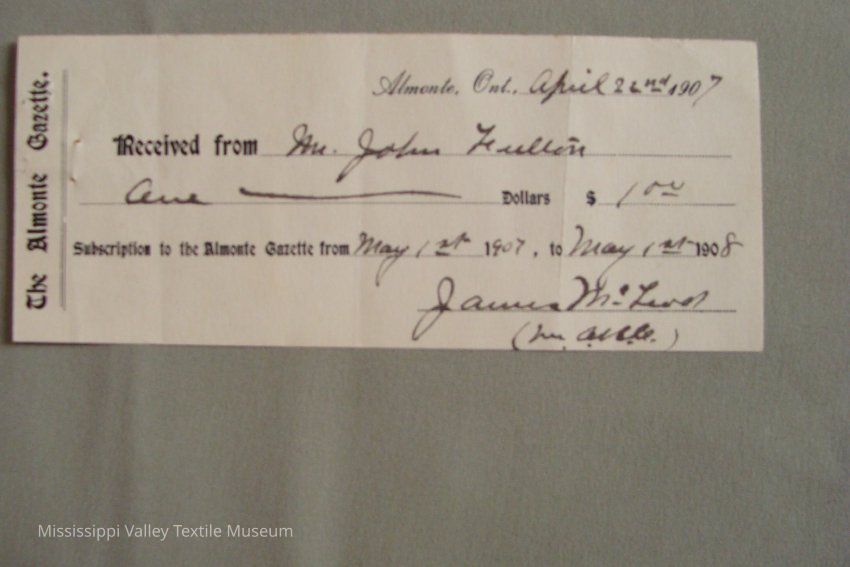 The Almonte Gazette.
Almonte, Ont., April 22nd 1907
Received from Mr. John Fulton
One Dollars $ 1 00
Subscription to the Almonte Gazette from May 1st 1907, to May 1st 1908
James Mc
Mississippi Valley Textile Museum